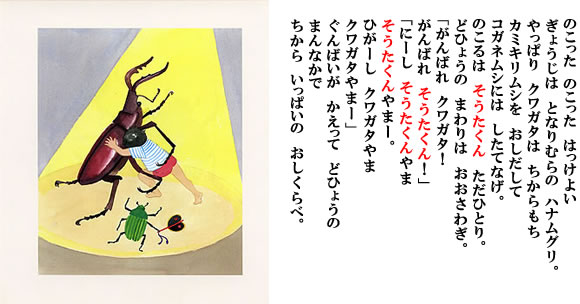 のこった のこった はっけよい
ぎょうじは となりむらの ハナムグリ。
やっぱり クワガタは ちからもち
カミキリムシを おしだして
コガネムシには したてなげ。
のこるは そうたくん ただひとり。
どひょうの まわりは おおさわぎ。
「がんばれ クワガタ!
がんばれ そうたくん!」
「にーし そうたくんやま
そうたくんやまー。
ひがーし クワガタやま
クワガタやまー」
ぐんばいが かえって どひょうの
まんなかで
ちから いっぱいの おしくらべ。